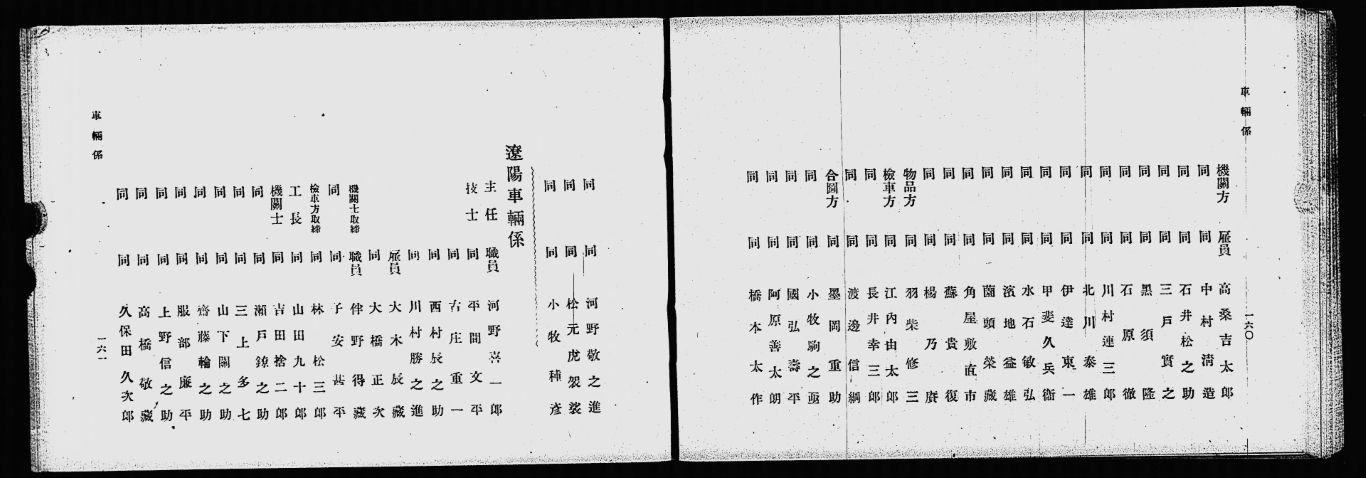 車輛係
一六〇
機關方 雇員 高桑吉太郎
同 同 中村清造
同 同 石井松之助
同 同 三戸實之
同 同 黒須隆
同 同 石原徹
同 同 川村連三郎
同 同 北川泰雄
同 同 伊達東一
同 同 甲斐久兵衞
同 同 水石敏弘
同 同 濱地益雄
同 同 薗頭榮藏
同 同 角屋敷直市
同 同 蘇貴復
同 同 楊乃賡
物品方 同 羽柴修三
檢車方 同 江內由太郎
同 同 長井幸三郎
同 同 渡邊信綱
合圖方 同 墨岡重助
同 同 小牧駒之
同 同 國弘壽平
同 同 阿原善太朗
同 同 橋本太作
同 同 河野敬之進
同 同 松元虎袈裟
同 同 小牧種彥
遼陽車輛係
主任 職員 河野喜一郎
技士 同 平間文平
同 右庄重一
同 西村辰之助
同 川村勝之進
雇員 大木辰藏
同 大橋正次
機關士取締 職員 伴野得藏
同 同 子安甚平
檢車方取締 同 林松三郎
工長 同 山田九十郎
機關士 同 吉田捨二郎
同 同 瀨戸錥之助
同 同 三上多七
同 同 山下關之助
同 同 齋藤輪之助
同 同 服部廉平
同 同 上野信之助
同 同 高橋敬藏
同 同 久保田久次郎
車輛係
一六一